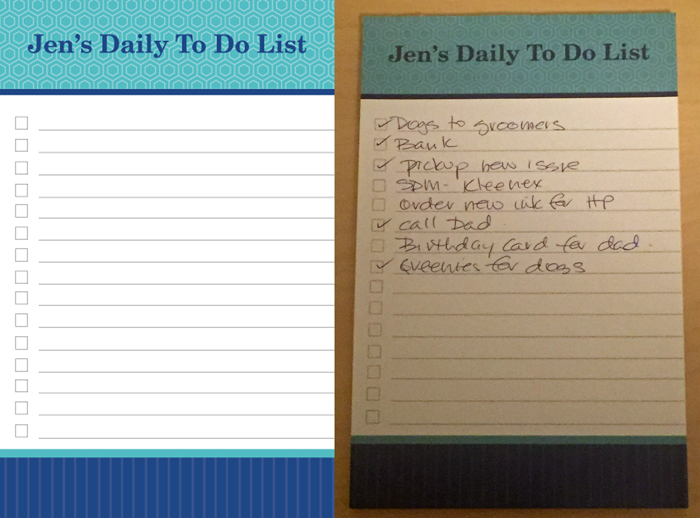 Jen's Daily To Do List
Jen's Daily To Do List
Dogs to groomers
Bank
Pickup new issue
SDM - Kleenex
Order new ink for HP
call Dad
Birthday card for dad.
Greenies for dogs